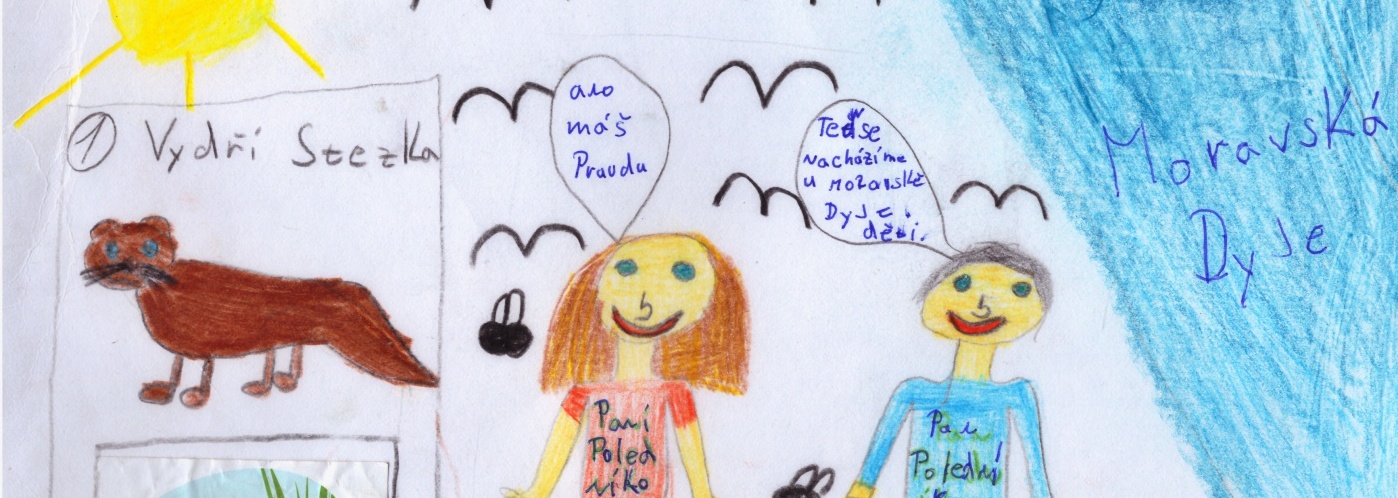 ① Vydří Stezka
ano
máš
Pravdu
Teď se
nacházíme
u moravské
Dyje.
děti.
Moravská
Dyje
Paní
Poled
níko
Pan
Poledni
ík